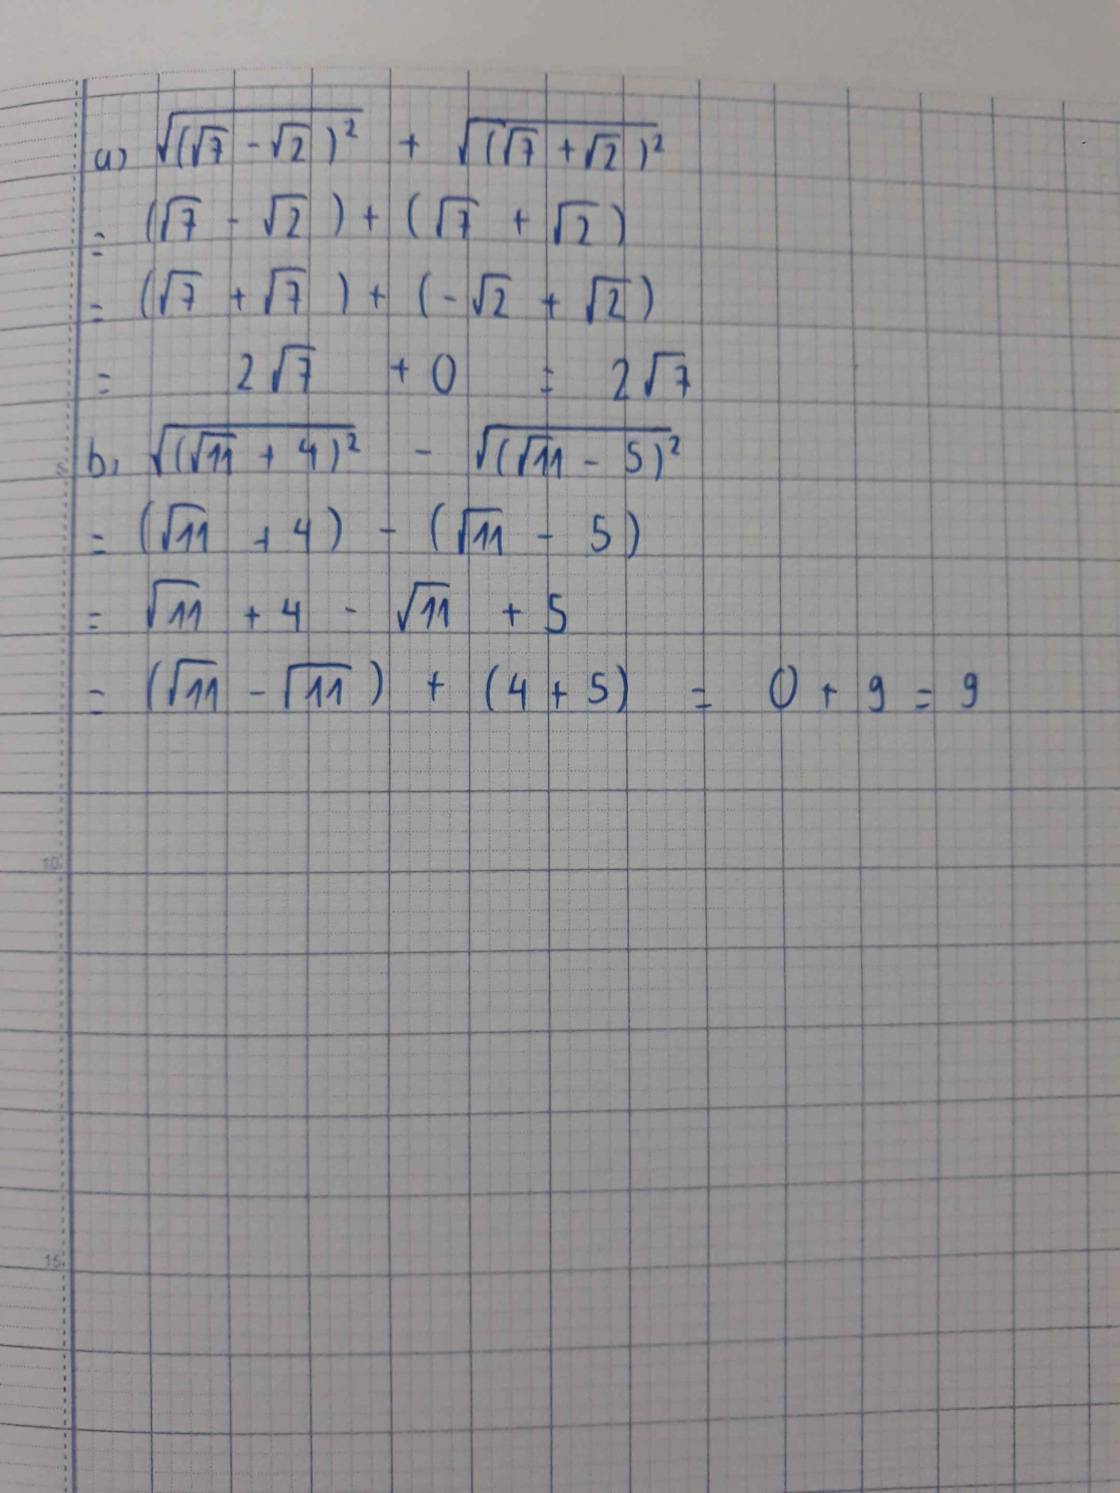 a) √(√7 - √2)² + √(√7 + √2)²
= (√7 - √2) + (√7 + √2)
= (√7 + √7) + (-√2 + √2)
= 2√7 + 0 = 2√7
b, √(√11 + 4)² - √(√11 - 5)²
= (√11 + 4) - (√11 - 5)
= √11 + 4 - √11 + 5
= (√11 - √11) + (4 + 5) = 0 + 9 = 9
5
10
15